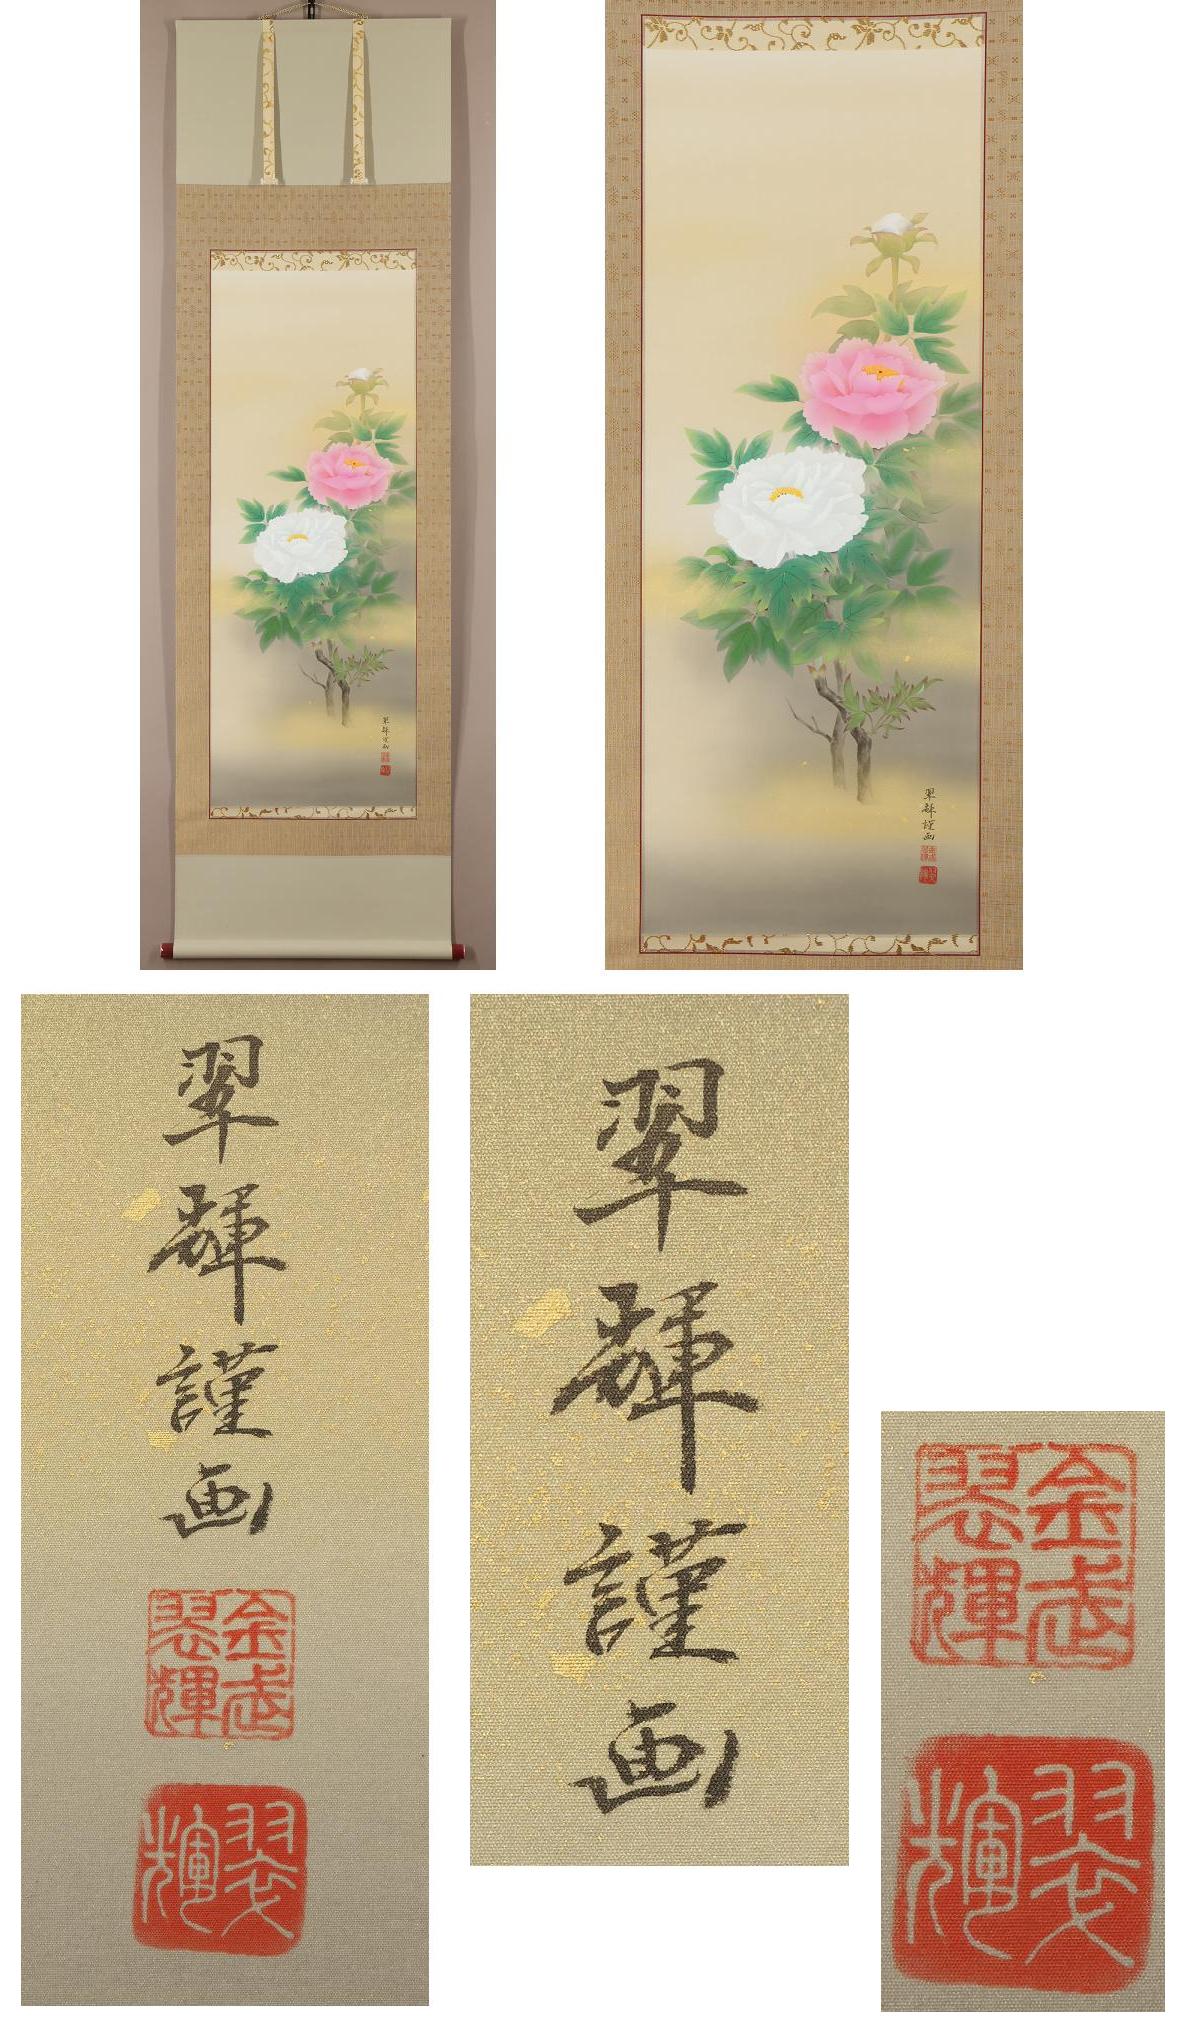 翠輝謹画
金武
翠輝
翠輝
翠輝謹画
金武
翠輝
翠輝
翠輝謹画